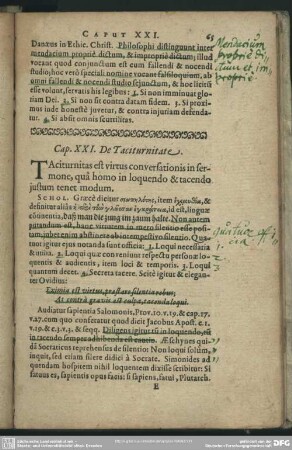 CAPUT XXI. 65
Danæus in Ethic. Christ. Philosophi distinguunt inter
mendacium proprie dictum, & improprie dictum; illud
vocant quod conjunctum est cum fallendi & nocendi
studio; hoc verò speciali nomine vocant falsiloquium, ab
omni fallendi & nocendi studio sejunctum, & hoc licitū
esse volunt, servatis his legibus: 1. Si non imminuat glo-
riam Dei. 2. Si non sit contra datam fidem. 3. Si proxi-
mus inde honestè juvetur, & contra injuriam defenda-
tur. 4. Si absit omnis scurrilitas.
Mendacium
proprie di-
ctum et im-
proprie
Cap. XXI. De Taciturnitate.
TAciturnitas est virtus conversationis in ser-
mone, quâ homo in loquendo & tacendo
justum tenet modum.
SCHOL. Græcè dicitur
definitur aliàs id est, linguæ
daß man die zung im zaum halte. Non autem
putandum est, hanc virtutem in mero silentio esse posi-
tam, jubet enim abstinere ab intempestivo silentio. Qua-
tuor igitur ejus notanda sunt officia: 1. Loqui necessaria
& unita. 2. Loqui quæ conveniunt respectu personæ lo-
quentis & audientis, item loci & temporis. 3. Loqui
quantum decet. 4. Secreta tacere. Scitè igitur & elegan-
ter Ovidius:
Eximia est virtus, præstare silentia rebus,
At contrà gravis est culpa, tacenda loqui.
Audiatur sapientia Salomonis, Prov. 10. v. 19. & cap. 17.
v. 27. cum quo conferatur quod dicit Jacobus Apost. c. 1.
v. 19. & c. 3. v. 5. & seqq. Diligens igitur sit in loquendo, es-
to in tacendo semper adhibenda est cautio. Æschynes qui-
dā Socraticus reprehensus de silentio: Non loqui solùm,
inquit, sed etiam silere didici à Socrate. Simonides ad
quendam hospitem nihil loquentem dixisse scribitur: Si
fatuus es, sapientis opus facis: si sapiens, fatui, Plutarch.
E